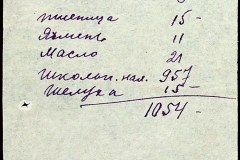 пшеница 15-
Ячмень 11
Масло 21
Школьн. нал. 957
Шелуха 15-
1054-